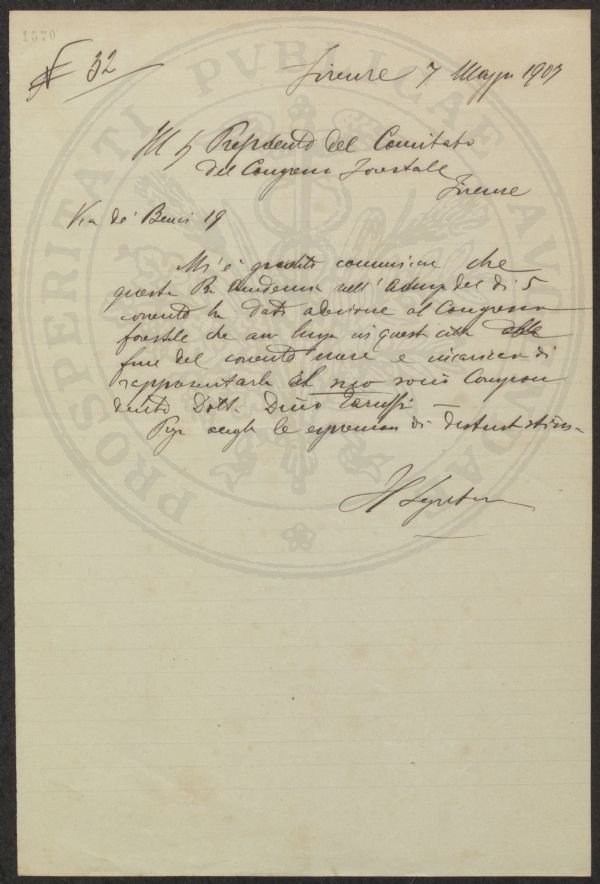 1570
N 32
Firenze 7 Maggio 1907
Ill Sig Presidente del Comitato
del Congresso forestale
Firenze
Via de' Benci 19
Mi è gradito comunicare che
questa R. Accademia nell'Adunza del dì 5
corrente ha dato adesione al Congresso
forestale che avrà luogo in questa città alla
fine del corrente mese e incaricava di
rappresentarla il suo socio Corrispon
dente Dott. Dino Taruffi
di distintissima
Il Segretario
PROSPERITATI PVBLICAE AVGENDAE